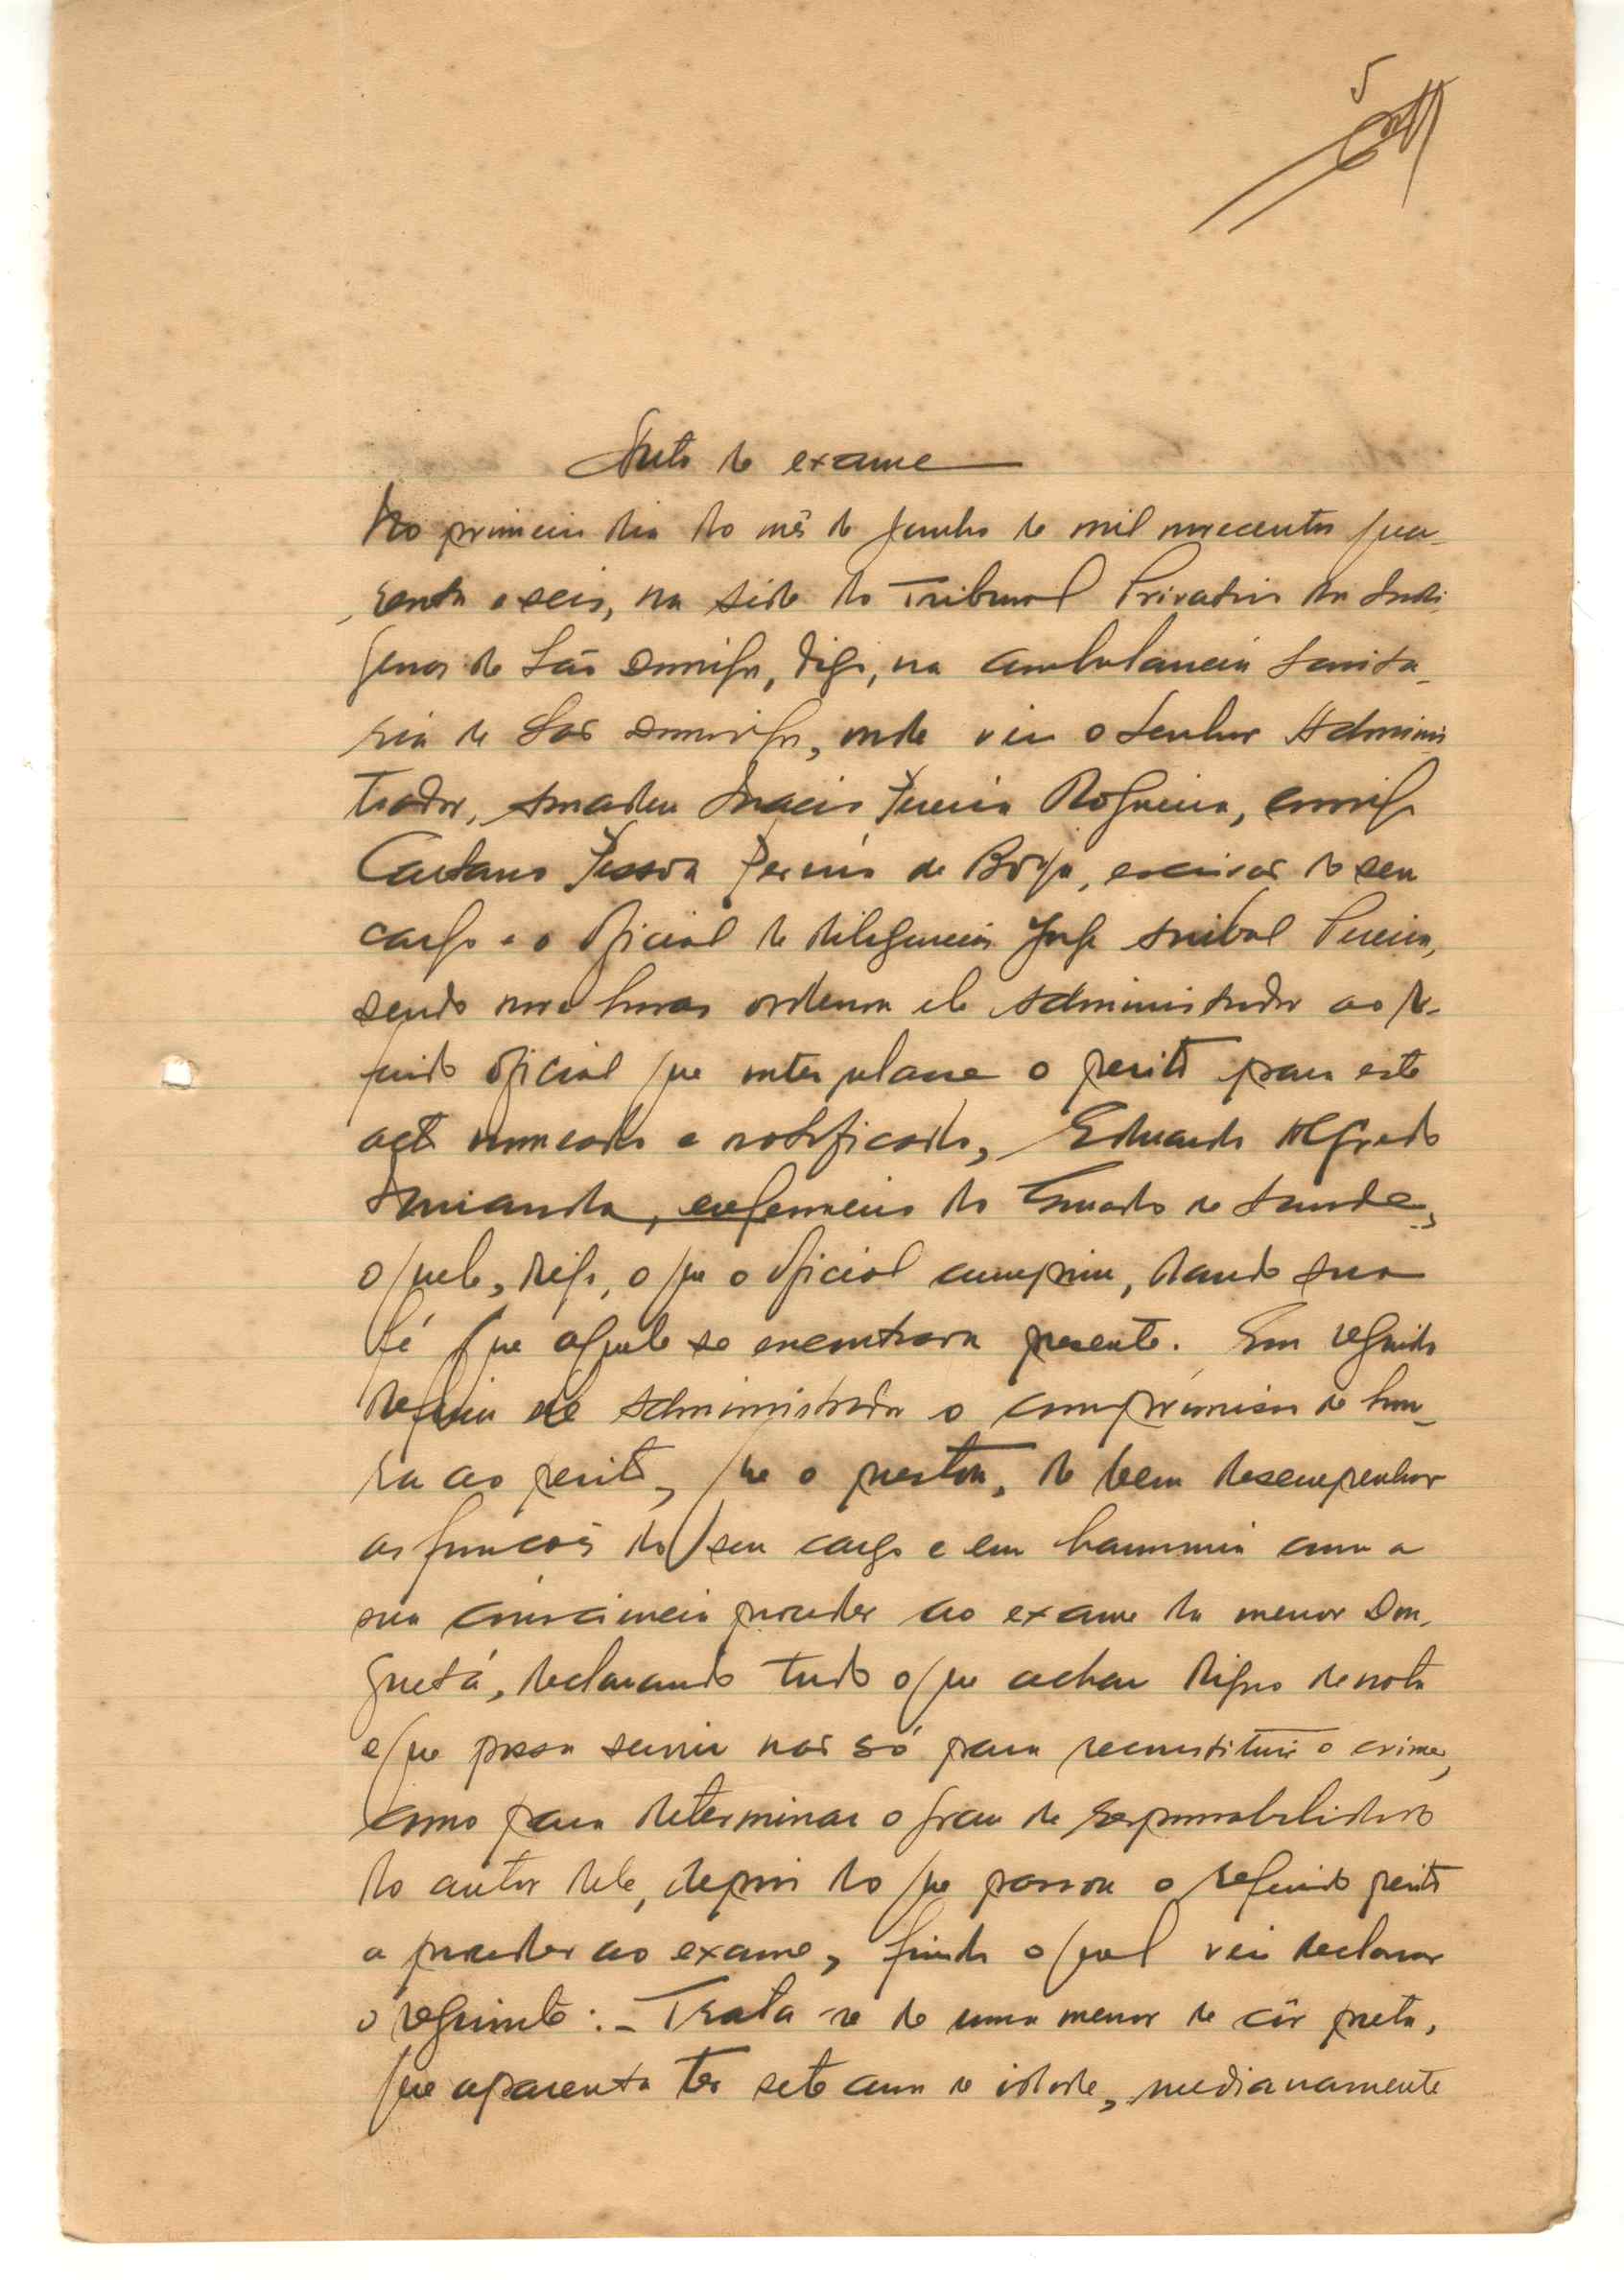 5
Auto de exame
No primeiro dia do mês de Junho de mil novecentos qua-
renta e seis, na séde do Tribunal Privativo dos Indi-
genas de São Domingos, digo, na ambulancia sanita-
ria de São Domingos, onde veiu o Senhor Adminis
trador, Amadeu Inacio Pereira Nogueira, comigo
Caetano Pessoa de Borja, escrivão do seu
cargo e o oficial de diligencias Jorge Anibal Pereira,
sendo nove horas ordenou ele Administrador ao re-
ferido oficial que interpelasse o perito para este
acto nomeado e notificado, Eduardo Alfredo
Miranda, enfermeiro do Quadro de Saude,
o quele, digo, o que o oficial cumpriu, dando sua
fé que aquele se encontrava presente. Em seguida
deferiu ele Administrador o compromisso de hon-
ra ao perito, que o prestou, de bem desempenhar
as funcões do seu cargo e em harmonia com a
sua consciencia proceder ao exame da menor Don-
guetá, declarando tudo o que achar digno de nota
e que possa servir não só para reconstituir o crime,
como para determinar o grau de responsabilidade
do autor dele, depois do que passou o referido perito
a proceder ao exame, findo o qual veiu declarar
o seguinte: - Trata-se de uma menor de côr preta,
que aparenta ter sete anos de idade, medianamente